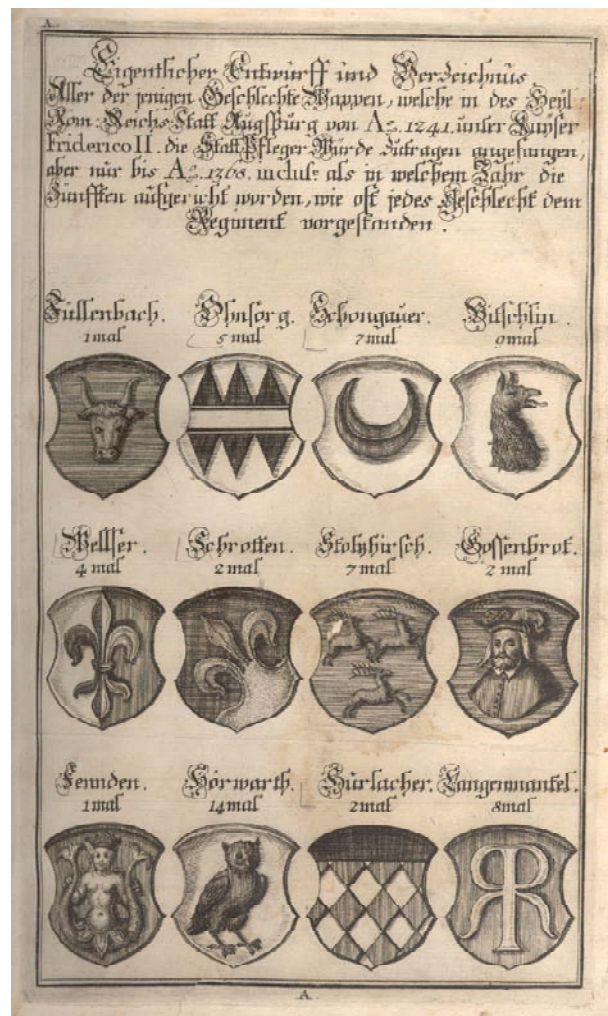 A.
Eigentlicher Entwurff und Verzeichnus
Aller der jenigen Geschlechte Wappen, welche in des Heyl.
Röm: Reichs Statt Augspurg von Aº. 1241. unter Kayser
Friderico II. die Statt Pfleger Würde zutragen angefangen,
aber nur bis Aº. 1368. inclusˢ. als in welchem Jahr die
Zünfften aufgericht worden, wie oft jedes Geschlecht dem
Regiment vorgestanden.
Füllenbach. Ohnsorg. Schongauer. Bitschlin.
1 mal 5 mal 7 mal 9 mal
Wellser. Schrotten. Stoltzhirsch. Gossenbrot.
4 mal 2 mal 7 mal 2 mal
Fennden. Hörwarth. Hürlacher. Langenmantel.
1 mal 14 mal 2 mal 8 mal
A.